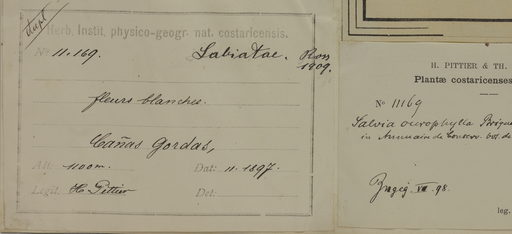 dupl
Herb. Instit. physico-geogr. nat. costaricensis.
No 11.169. Labiatae.
1909.
fleurs blanches.
Cañas Gordas,
Alt: 1100m. Dat: 11.1897.
Legit. H. Pittier Det:
H. PITTIER & TH.
Plantæ costaricenses
No 11169
Salvia
in Annuaire de Conserv. bot. de
VII 98.
leg.